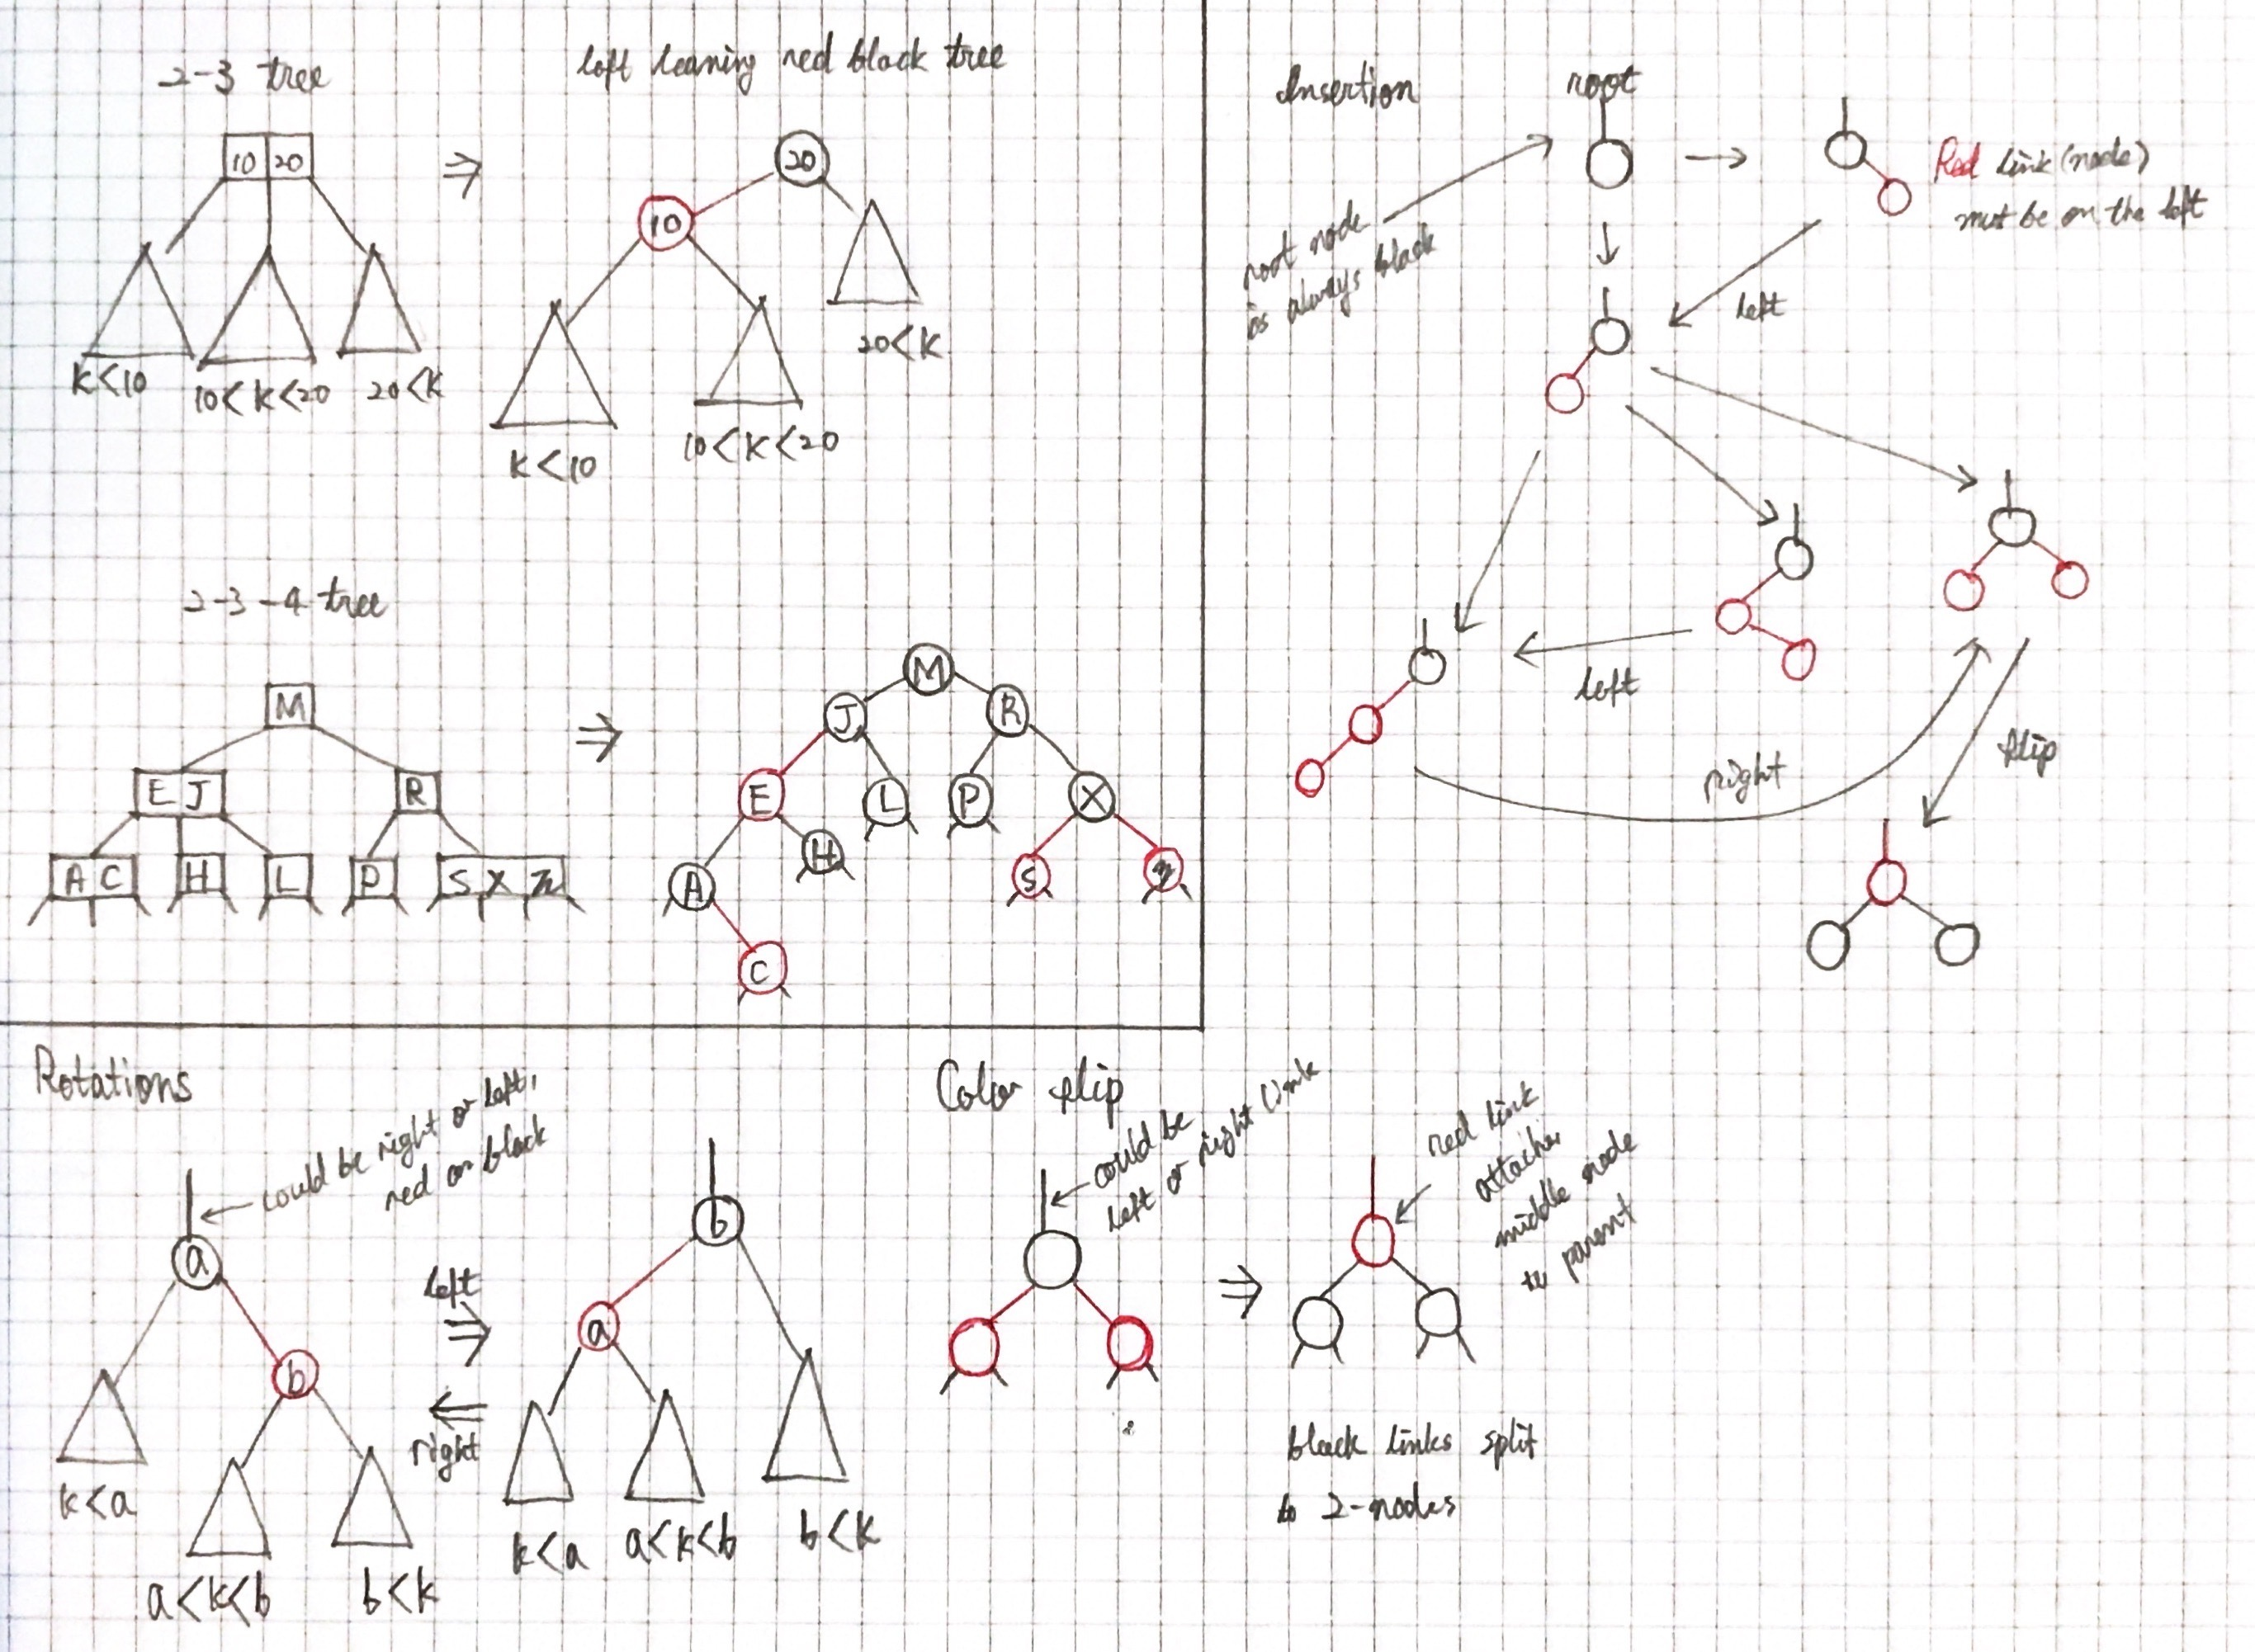 2-3 tree
10 20
k<10
10<k<20
20<k
⇒
left leaning red black tree
20
10
20<k
k<10
10<k<20
2-3-4 tree
M
E J
R
A C
H
L
P
S X Z
⇒
M
J
R
E
L
P
X
A
H
S
Z
C
Insertion
root
root node
is always black
Red link (node)
must be on the left
left
left
right
flip
Rotations
could be right or left,
red or black
a
b
k<a
a<k<b
b<k
left
⇒
⇐
right
b
a
k<a
a<k<b
b<k
Color flip
could be
left or right link
⇒
red link
attaches
middle node
to parent
black links split
to 2-nodes